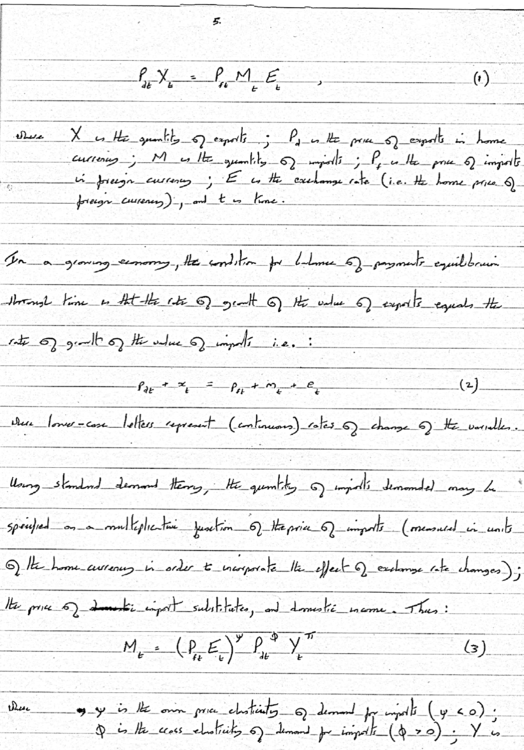 5.
P_dt X_t = P_ft M_t E_t , (1)
where X is the quantity of exports ; P_d is the price of exports in home
currency ; M is the quantity of imports ; P_f is the price of imports
in foreign currency ; E is the exchange rate (i.e. the home price of
foreign currency), and t is time.
In a growing economy, the condition for balance of payments equilibrium
through time is that the rate of growth of the value of exports equals the
rate of growth of the value of imports i.e. :
p_dt + x_t = p_ft + m_t + e_t (2)
where lower-case letters represent (continuous) rates of change of the variables.
Using standard demand theory, the quantity of imports demanded may be
specified as a multiplicative function of the price of imports (measured in units
of the home currency in order to incorporate the effect of exchange rate changes) ;
the price of import substitutes, and domestic income. Thus :
M_t = (P_ft E_t)^ψ P_dt^ϕ Y_t^π (3)
where ψ is the own price elasticity of demand for imports (ψ < 0) ;
ϕ is the cross elasticity of demand for imports (ϕ > 0) ; Y is